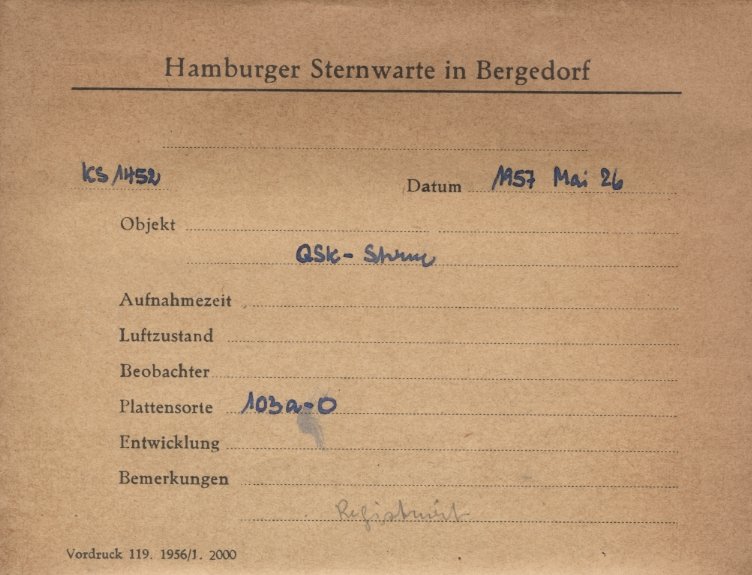 Hamburger Sternwarte in Bergedorf
KS 1452 Datum 1957 Mai 26
Objekt
QSK - Sterne
Aufnahmezeit
Luftzustand
Beobachter
Plattensorte 103a-O
Entwicklung
Bemerkungen
Registriert
Vordruck 119. 1956/1. 2000